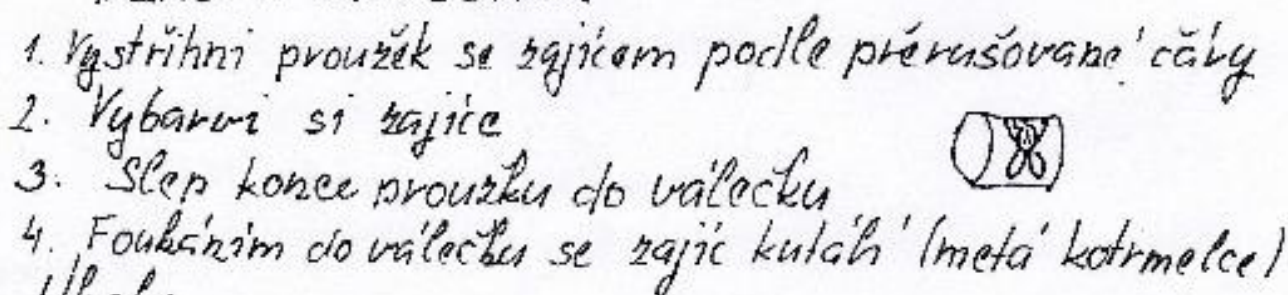 1. Vystřihni proužek se zajícem podle přerušované čáry
2. Vybarvi si zajíce
3. Slep konce proužku do válečku
4. Foukáním do válečku se zajíc kutálí (metá kotrmelce)